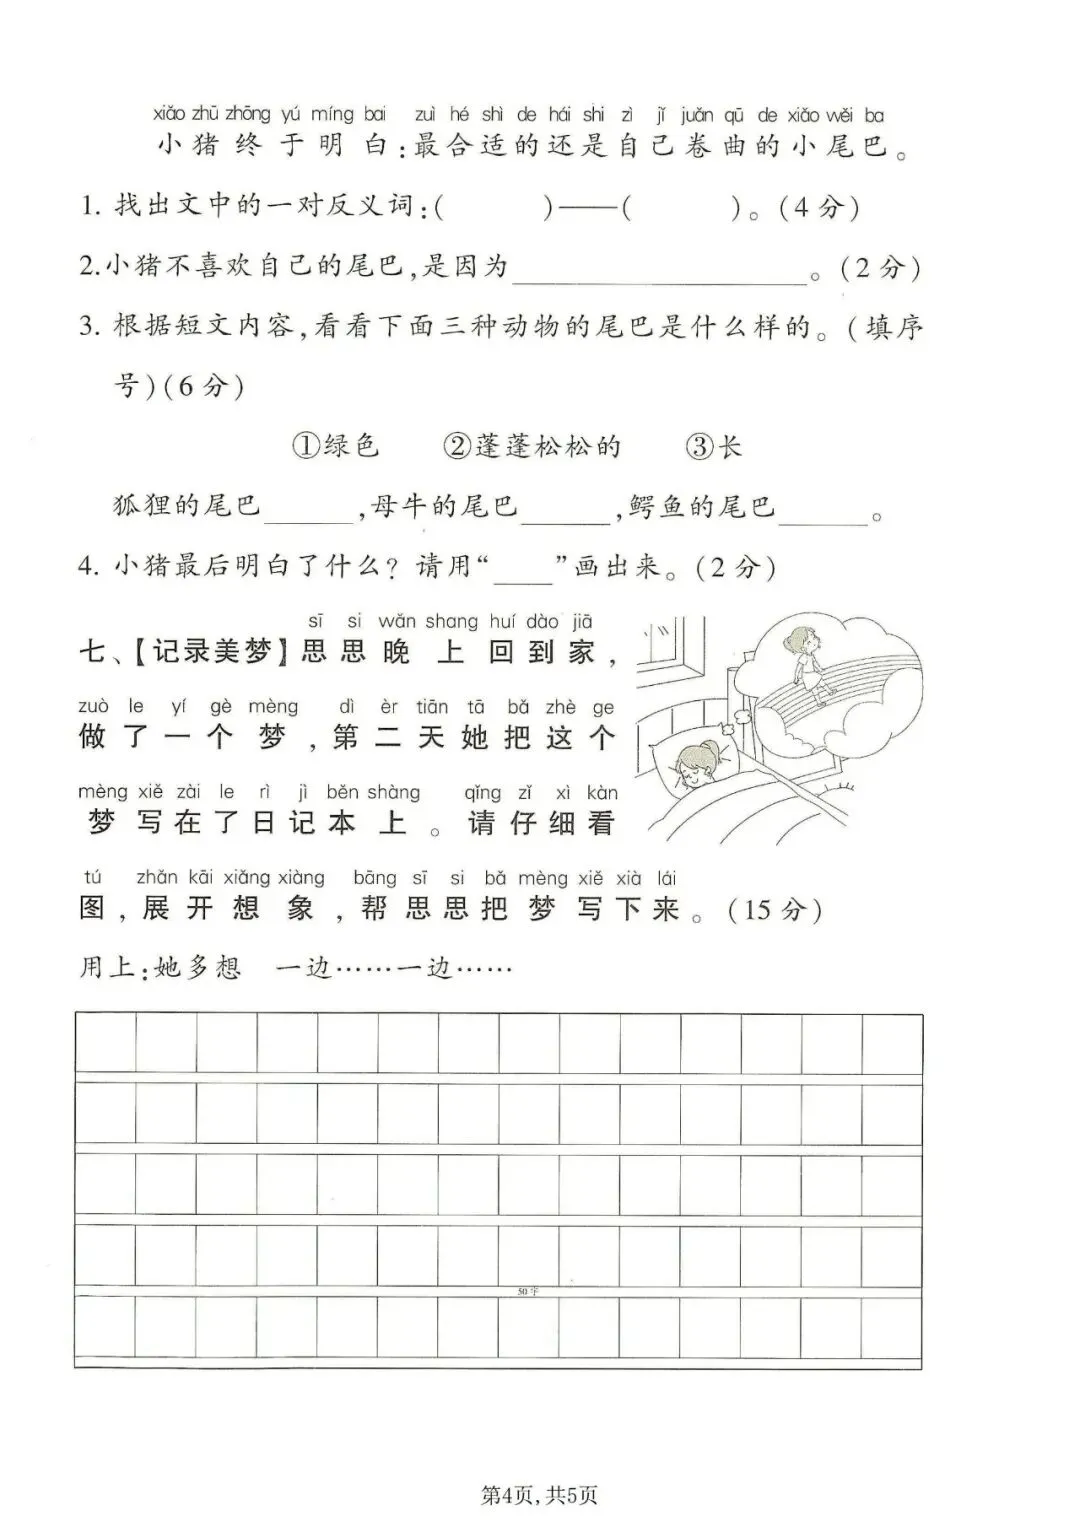 xiǎo zhū zhōng yú míng bai zuì hé shì de hái shi zì jǐ juǎn qū de xiǎo wěi ba
小猪终于明白:最合适的还是自己卷曲的小尾巴。
1. 找出文中的一对反义词:( )——( )。(4分)
2.小猪不喜欢自己的尾巴,是因为____________________。(2分)
3. 根据短文内容,看看下面三种动物的尾巴是什么样的。(填序
号)(6分)
①绿色 ②蓬蓬松松的 ③长
狐狸的尾巴______,母牛的尾巴______,鳄鱼的尾巴______。
4. 小猪最后明白了什么?请用“____”画出来。(2分)
sī si wǎn shang huí dào jiā
七、【记录美梦】思思晚上回到家,
zuò le yí gè mèng dì èr tiān tā bǎ zhè ge
做了一个梦,第二天她把这个
mèng xiě zài le rì jì běn shàng qǐng zǐ xì kàn
梦写在了日记本上。请仔细看
tú zhǎn kāi xiǎng xiàng bāng sī si bǎ mèng xiě xià lái
图,展开想象,帮思思把梦写下来。(15分)
用上:她多想 一边……一边……
50字
第4页,共5页